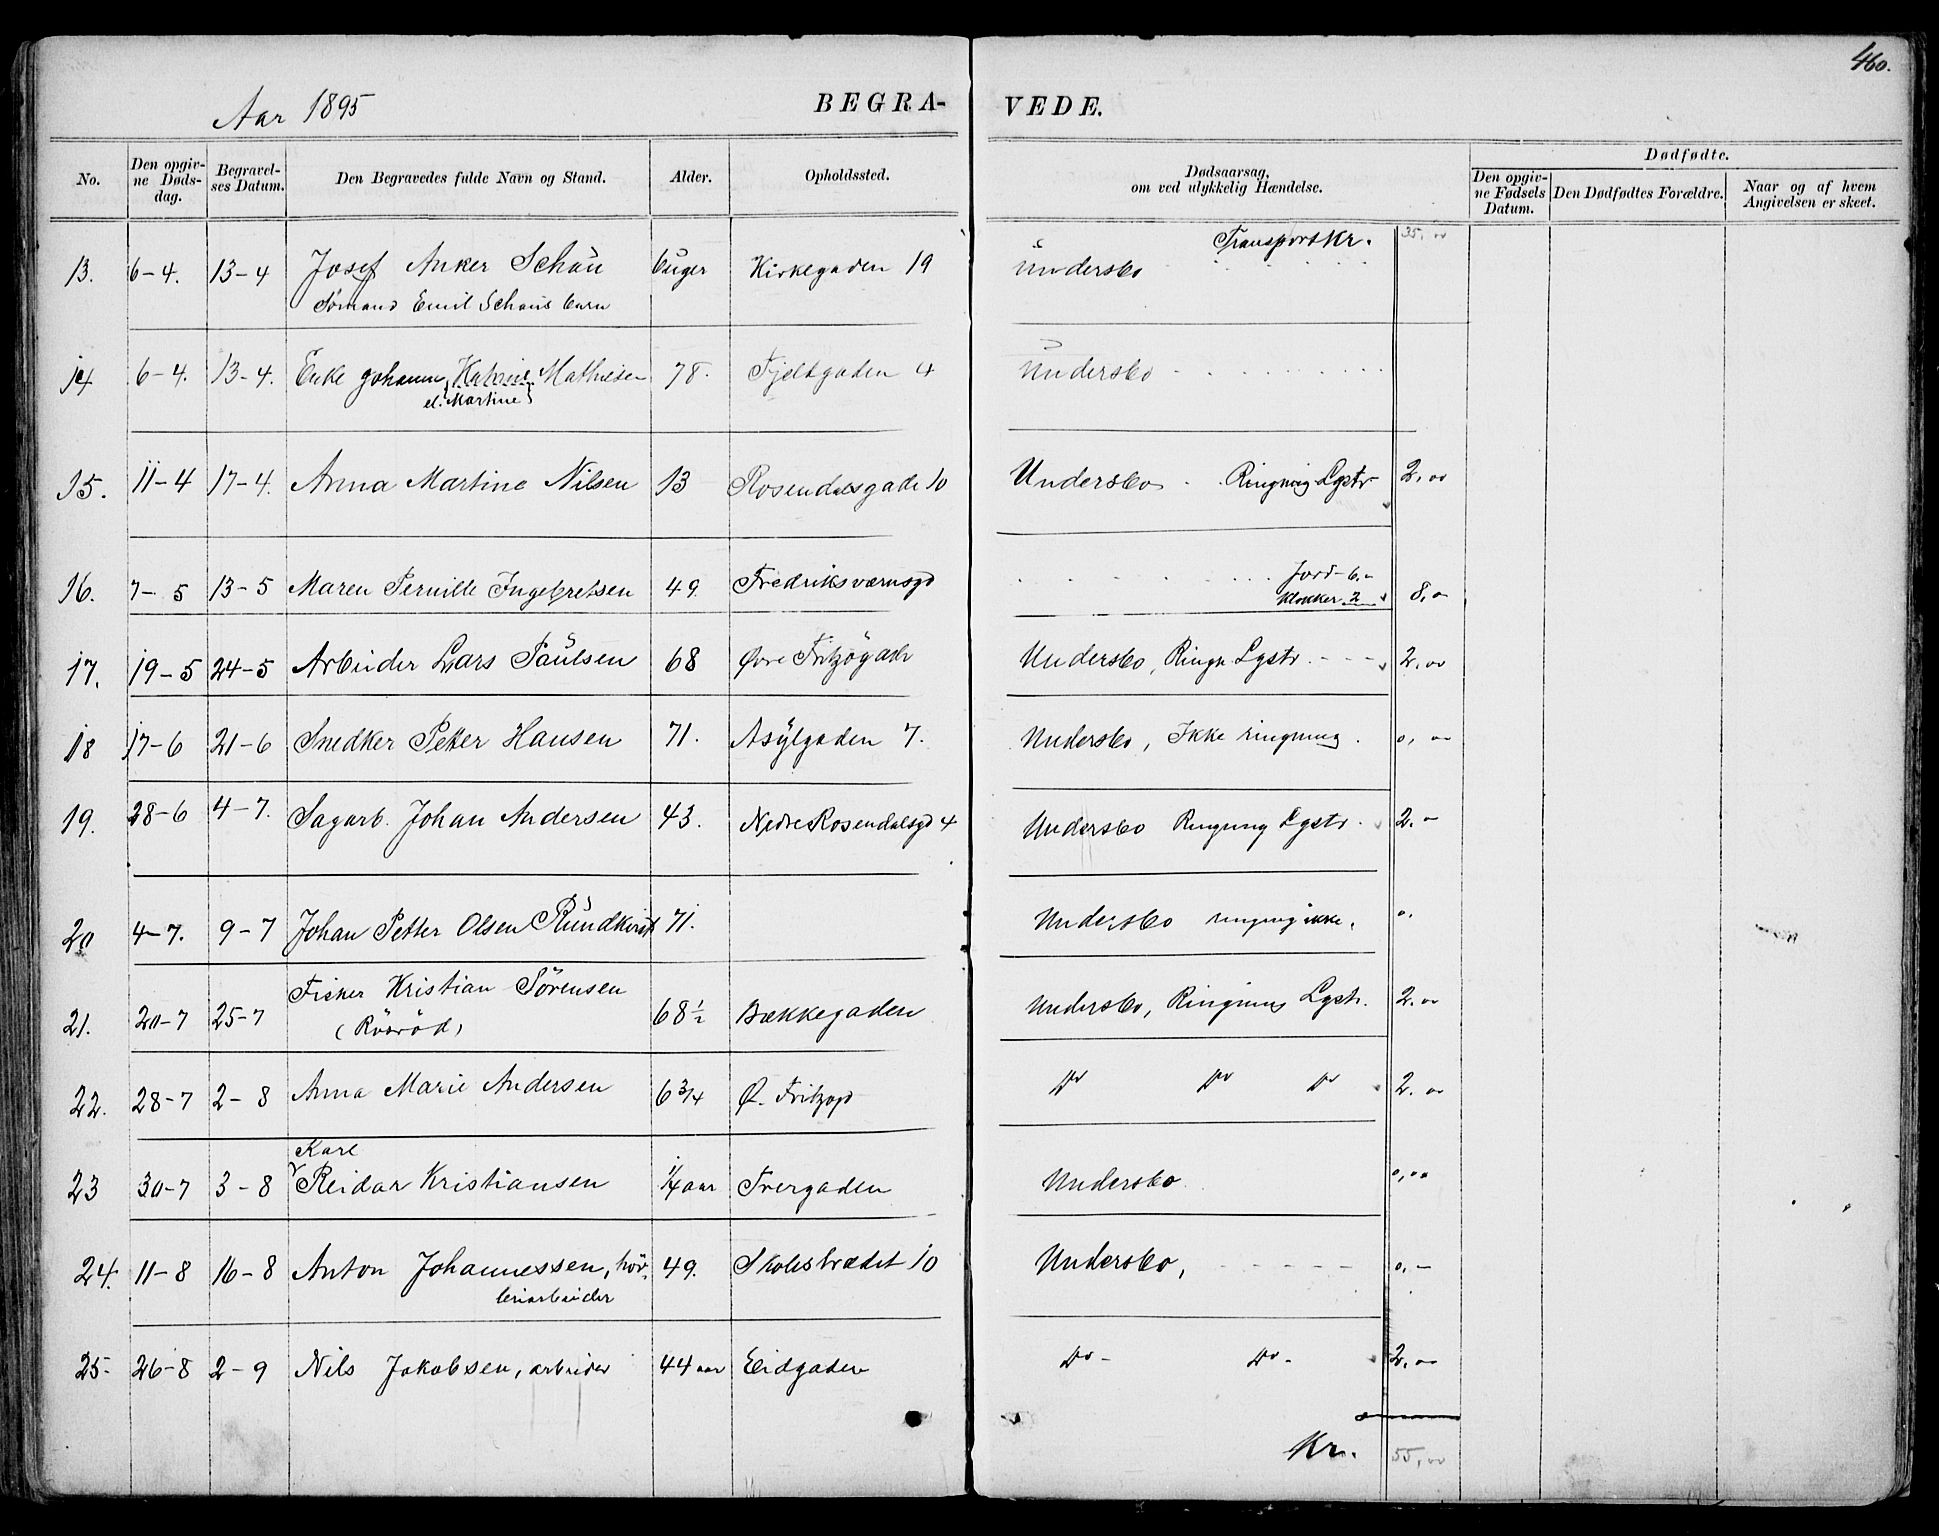 460.
Aar 1895
BEGRA-
VEDE.
No.
Den opgiv-
ne Døds-
dag.
Begravel-
ses Datum.
Den Begravedes fulde Navn og Stand.
Alder.
Opholdssted.
Dødsaarsag,
om ved ulykkelig Hændelse.
Dødfødte.
Den opgiv-
ne Fødsels
Datum.
Den Dødfødtes Forældre.
Naar og af hvem
Angivelsen er skeet.
Transport Kr. 35,00
13. 6-4. 13-4 Josef Anker Schau 6 uger Kirkegaden 19 Undersbo
Sømand Emil Schaus barn
14 6-4. 13-4. Enke Johanne Katrine Mathisen 78. Fjeldgaden 4 Undersbo
el. Martine
15. 11-4 17-4. Anna Martine Nilsen 13 Rosendalsgade 10 Undersbo Ringning Lystr 2,00
16. 7-5 13-5 Maren Pernille Ingebretsen 49. Fredriksværnsgd Jord-6.-
Klokker 2 8,0
17. 19-5 24-5 Arbeider Lars Paulsen 68 Øvre Fritzøgade Undersbo, Ringn Lystr. 2,00
18 17-6 21-6 Snedker Petter Hansen 71. Asylgaden 7. Undersbo, Ikke ringning. 0,00
19. 28-6 4-7. Sagarb. Johan Andersen 43. Nedre Rosendalsgd 4 Undersbo Ringning Lystr. 2.-
20 4-7. 9-7 Johan Petter Olsen Rundkvist 71. Undersbo ringning ikke. 0.
21. 20-7 25-7 Fisker Kristian Sörensen 68 1/2 Bækkegaden Undersbo, Ringning Lystr. 2,00
22. 28-7 2-8 Anna Marie Andersen 6 3/4 Ø. Fritzøgd Do Do Do 2.00
Karl
23 30-7 3-8 Reidar Kristiansen 1/4 aar Tvergaden Undersbo 0,00
24. 11-8 16-8 Anton Johannessen, höv- 49. Skolestrædet 10 Undersbo, 0,-
leriarbeider
25- 26-8 2-9 Nils Jakobsen, arbeider 44 aar Eidgaden Do- Do- 2,00
Kr. 55,00